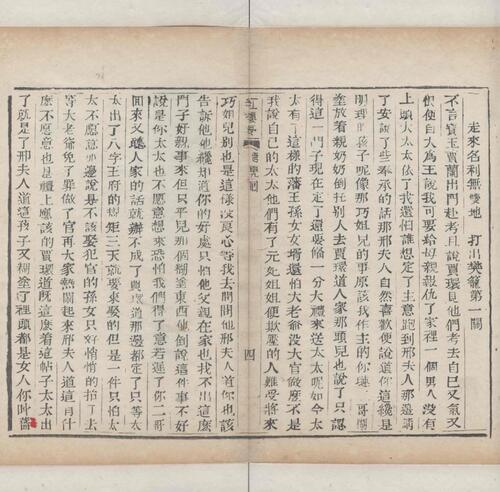 走來名利無雙地　打出樊籠第一關
不言寶玉賈蘭出門赴考且說賈環見他們考去自己又氣又
恨便自大為王說我可要給母親報仇了家裡一個男人沒有
上頭大太太依了我還怕誰想定了主意跑到邢夫人那邊請
了安說了些奉承的話那邢夫人自然喜歡便說道你這纔是
明理的孩子呢像那巧姐兒的事原該我作主的你璉二哥糊
塗放着親奶奶倒托別人去賈環道人家那頭兒也說了只認
得這一門子現在定了還要俻一分大禮來送太太呢如今太
太有了這樣的藩王孫女女婿還怕大老爺沒大官做麽不是
我說自己的太太他們有了元妃姐姐便欺壓的人難受將來
紅樓夢
四
巧姐兒別也是這樣沒良心等我去問問他邢夫人道你也該
告訴他他纔知道你的好處只怕他父親在家也找不出這麽
門子好親事來但只平兒那個糊塗東西他倒說這件事不好
說是你太太也不愿意想來恐怕我們得了意若遲了你二哥
囬來又聽人家的話就辦不成了賈環道那邊都定了只等太
太出了八字王府的規矩三天就要來娶的但是一件只怕太
太不愿意那邊說是不該娶犯官的孫女只好悄悄的抬了去
等大老爺免了罪做了官再大家熱鬧起來邢夫人道這有什
麽不愿意也是禮上應該的賈環道既這麽着這帖子太太出
了就是了邢夫人道這孩子又糊塗了裡頭都是女人你叫薔